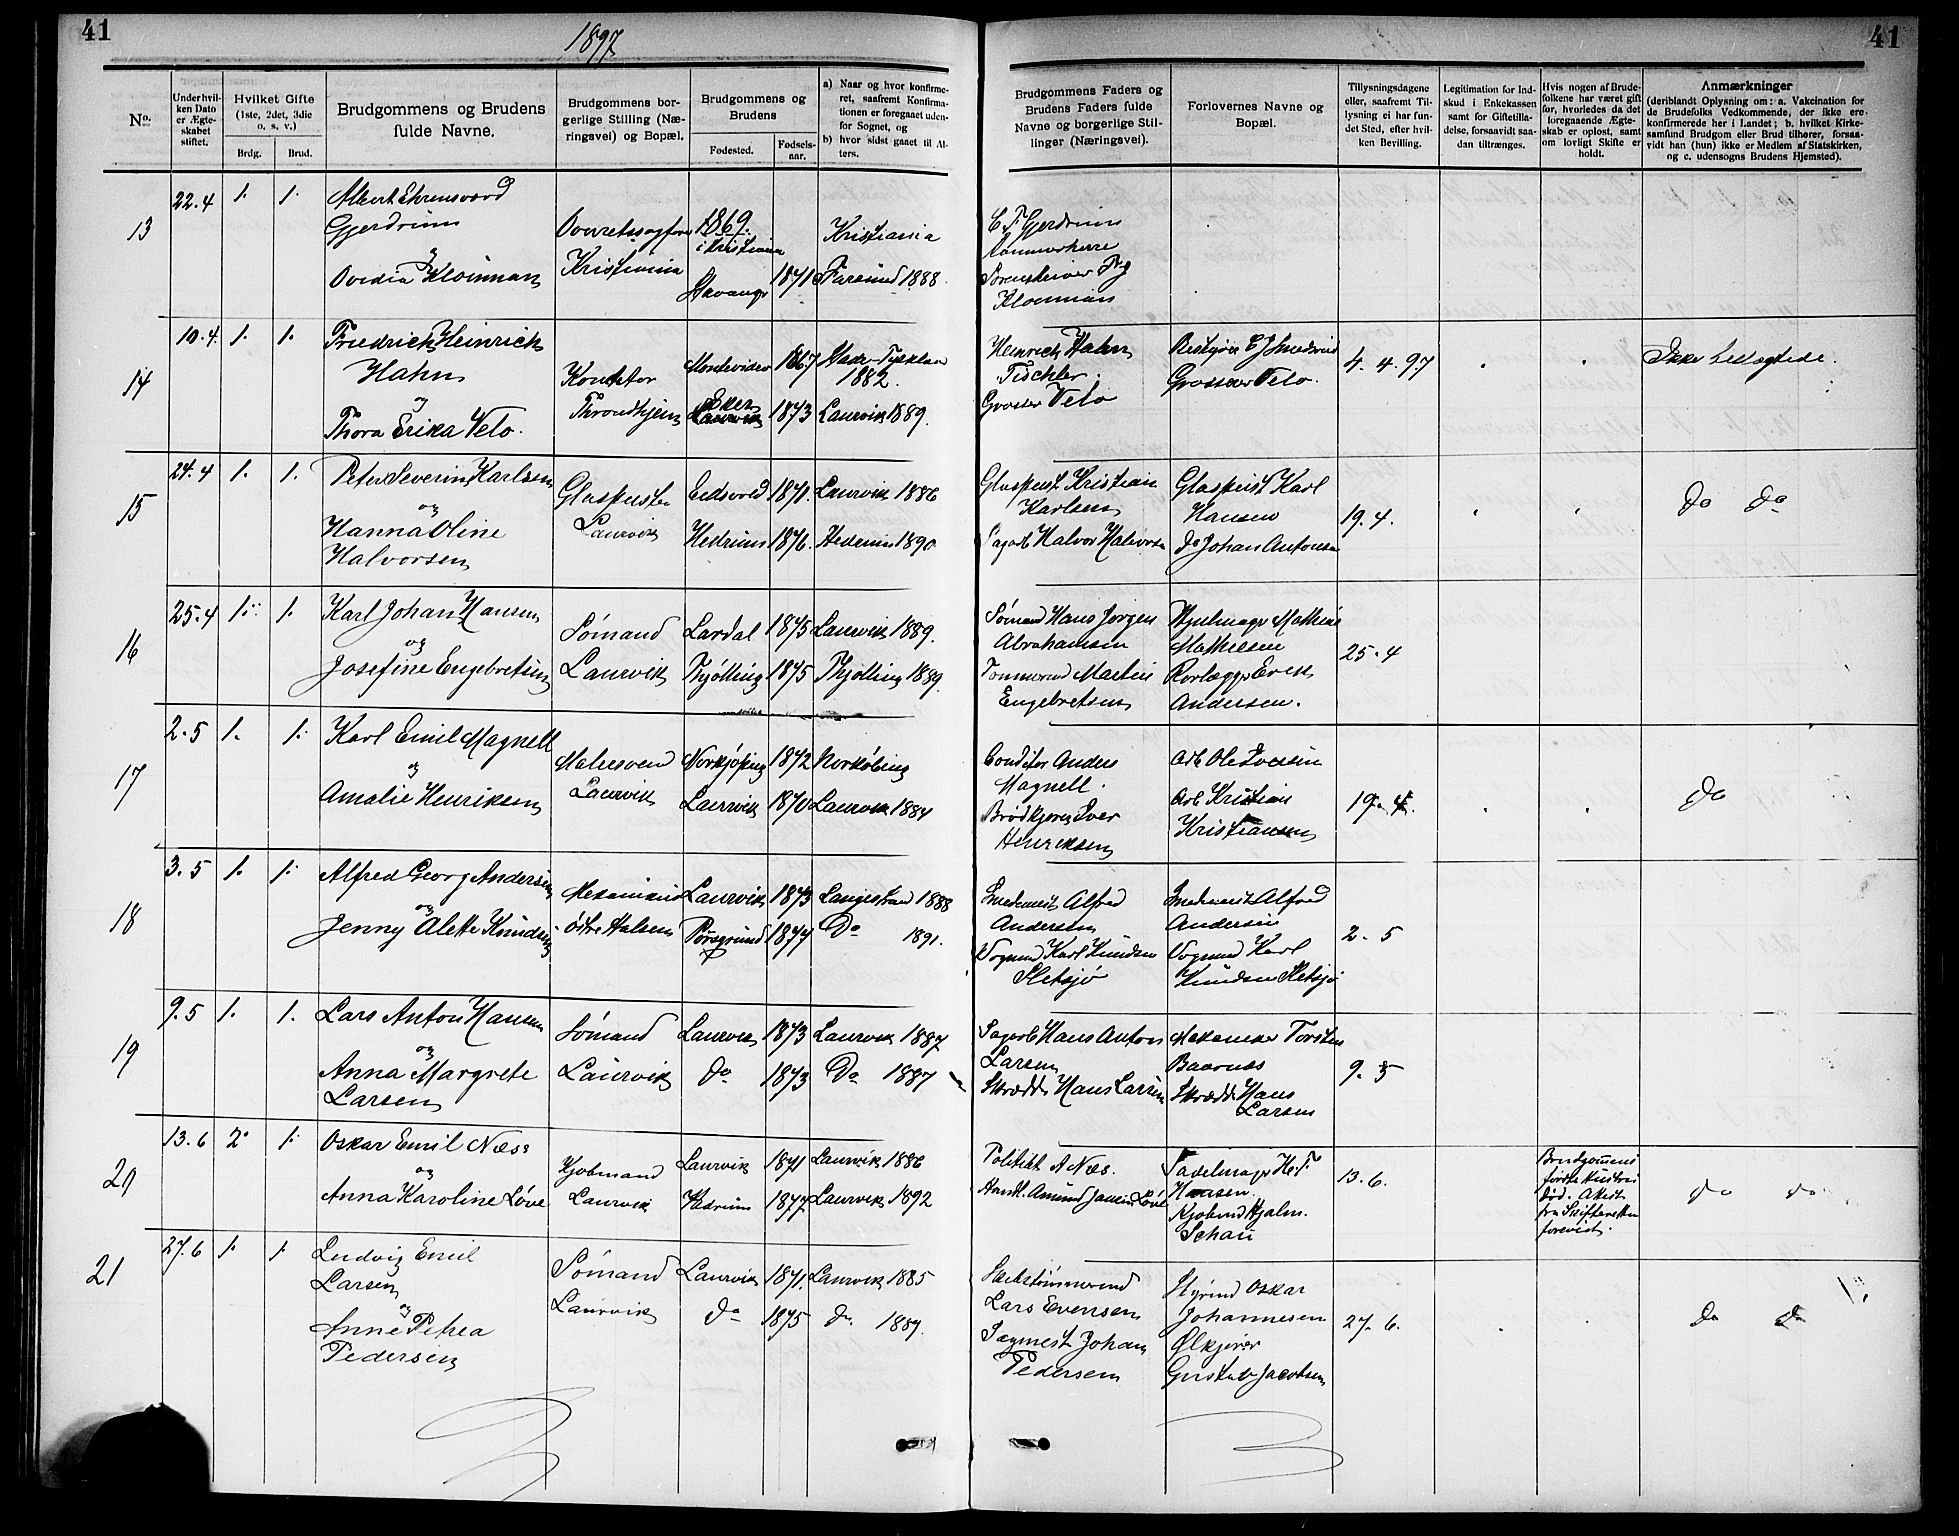 41
1897
41
No.
Under hvilken Dato er Ægteskabet stiftet.
Hvilket Gifte (1ste, 2det, 3die o. s. v.)
Brdg.
Brud.
Brudgommens og Brudens fulde Navne.
Brudgommens borgerlige Stilling (Næringsvei) og Bopæl.
Brudgommens og Brudens
Fødested.
Fødselsaar.
a) Naar og hvor konfirmeret, saafremt Konfirmationen er foregaaet udenfor Sognet, og
b) hvor sidst gaaet til Alters.
Brudgommens Faders og Brudens Faders fulde Navne og borgerlige Stillinger (Næringsvei).
Forlovernes Navne og Bopæl.
Tillysningsdagene eller, saafremt Tillysning ei har fundet Sted, efter hvilken Bevilling.
Legitimation for Indskud i Enkekassen samt for Giftetilladelse, forsaavidt saadan tiltrænges.
Hvis nogen af Brudefolkene har været gift før, hvorledes da det foregaaende Ægteskab er opløst, samt om lovligt Skifte er holdt.
Anmærkninger
(deriblandt Oplysning om: a. Vakcination for de Brudefolks Vedkommende, der ikke ere konfirmerede her i Landet; b. hvilket Kirkesamfund Brudgom eller Brud tilhører, forsaavidt han (hun) ikke er Medlem af Statskirken, og c. udensogns Brudens Hjemsted).
13
22.4
1.
1.
Albert Ehrensvard
Gjerdrum
og
Ovidia Kloumann
Overretssagfører
Kristiania
1869.
i Kristiania
Stavanger
1871
Kristiania
Farsund 1888
C. F. Gjerdrum
Kammerherre
Sorenskriver
Kloumann
14
10.4.
1.
1.
Friedrich Heinrich
Hahn
og
Thora Erika Velo.
Konditor
Throndhjem
Montevideo
Eker
1867
1873
Tyskland
1882.
Laurvik 1889.
Heinrich Hahn
Tischler.
Grosser Velo
Bestyrer E J Smedsrud
Grosserer Velo.
4. 4. 97
Ikke beslægtede.
15
24.4
1.
1.
Peter Severin Karlsen
og
Hanna Oline
Halvorsen
Glaspuster
Laurvik
Eidsvold
Hedrum
1871.
1876.
Laurvik 1886
Hedrum 1890
Glaspust Kristian
Karlsen
Sagarb Halvor Halvorsen
Glaspust Karl
Hansen
do Johan Antonsen
19.4.
do do
16
25.4
1.
1.
Karl Johan Hansen
og
Josefine Engebretsen
Sømand
Laurvik
Lardal
Thjølling
1875
1875
Laurvik 1889.
Thjølling 1889.
Sømand Hans Jørgen
Abrahamsen
Tømmermd Martin
Engebretsen
Hjulmager Mathias
Mathiesen
Rørlægger Even
Andersen.
25.4
17
2.5
1.
1.
Karl Emil Magnell
og
Amalie Henriksen
Malersvend
Laurvik
Norkjøping
Laurvik
1872
1870
Norkøbing
Laurvik 1884
Conditor Anders
Magnell.
Brødkjører Iver
Henriksen
Arb Ole Iversen
Arb Kristian
Kristiansen
19. 4.
do
18
3.5
1.
1.
Alfred Georg Andersen
og
Jenny Alette Knudsen
Mekanikus
Østre Halsen
Laurvik
Porsgrund
1873
1874
Langestrand 1888
Do 1891.
Smedemest Alfred
Andersen
Vognmd Karl Knudsen
Sletsjø
Smedemest Alfred
Andersen
Vognmd Karl
Knudsen Sletsjø
2. 5
19
9.5
1.
1.
Lars Anton Hansen
og
Anna Margrete
Larsen
Sømand
Laurvik
Laurvik
do
1873
1873
Laurvik 1887
Do 1887
Sagarb Hans Anton
Larsen
Skrædder Hans Larsen
Mekaniker Torsten
Baarnæs
Skrædd Hans
Larsen
9. 5
20
13.6
2.
1.
Oskar Emil Næss
og
Anna Karoline Løve
Kjøbmand
Laurvik
Laurvik
Hedrum
1871
1877
Laurvik 1886
Laurvik 1892
Politibt A Næs.
Handl. Amund Jansen Løve
Sadelmager H. F.
Hansen.
Kjøbmd Hjalm.
Schau
13.6.
Brudgommens
første Hustru
død. Attest
fra Skifteretten
forevist.
do do
21
27.6
1.
1.
Ludvig Emil
Larsen
og
Anne Petrea
Pedersen
Sømand
Laurvik
Laurvik
do
1871.
1875
Laurvik 1885
do. 1889.
Skibstømmermd
Lars Evensen
Sagmest Johan
Pedersen
Styrmd Oskar
Johannesen
Ølkjører
Gustav Jacobsen
27.6.
do do